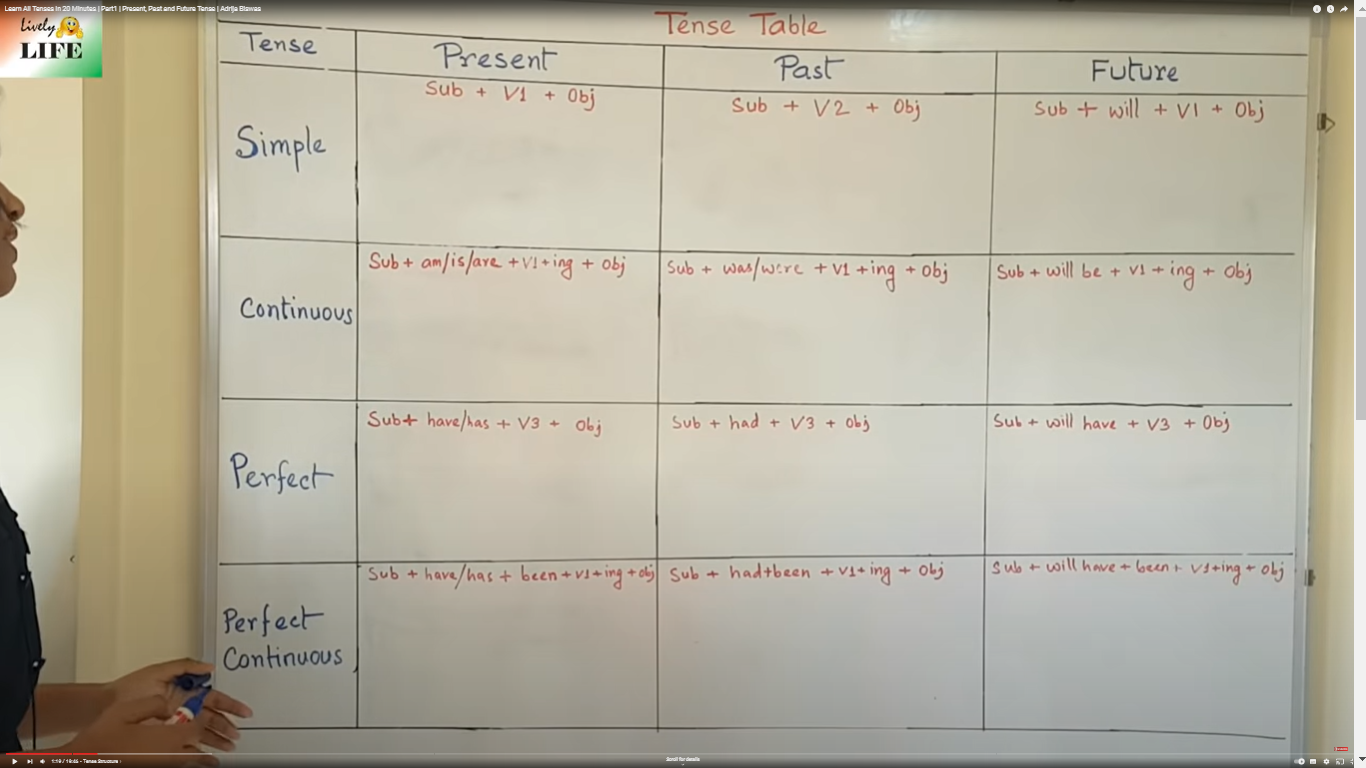 Learn All Tenses In 20 Minutes | Part1 | Present, Past and Future Tense | Adrija Biswas
Lively
LIFE
Tense Table
Tense Present Past Future
Simple
Sub + V1 + Obj
Sub + V2 + Obj
Sub + will + V1 + Obj
Continuous
Sub + am/is/are + V1+ing + Obj
Sub + was/were + V1 +ing + Obj
Sub + will be + V1 + ing + Obj
Perfect
Sub+ have/has + V3 + Obj
Sub + had + V3 + Obj
Sub + will have + V3 + Obj
Perfect
Continuous
Sub + have/has + been+V1+ing+obj
Sub + had+been + V1+ing + Obj
Sub + will have + been + V1+ing + Obj
Scroll for details